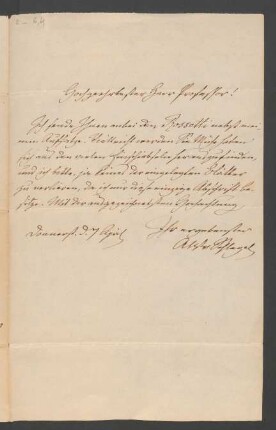 Hochgeehrtester Herr Professor!
Ich sende Ihnen anbei den Rossetti nebst mei-
nem Aufsatze. Vielleicht werden Sie Mühe haben
sich aus den vielen Einschiebseln herauszufinden,
und ich bitte, ja keines der eingelegten Blätter
zu verlieren, da ich nur diese einzige Abschrift be-
sitze. Mit der ausgezeichnetsten Hochachtung
Ihr ergebenster
Donnerst. d. 7 April
AWvSchlegel